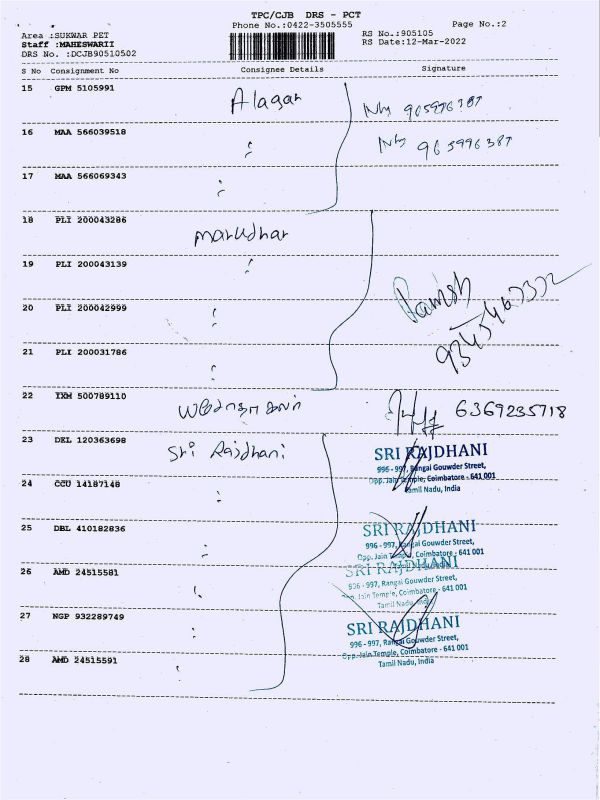 TPC/CJB DRS - PCT
Phone No.:0422-3505555
Page No.:2
Area :SUKWAR PET
Staff :MAHESWARII
DRS No. :DCJB90510502
RS No.:905105
RS Date:12-Mar-2022
S No Consignment No Consignee Details Signature
15 GPM 5105991 Alagar
16 MAA 566039518
17 MAA 566069343
18 PLI 200043286 marudhar
19 PLI 200043139
20 PLI 200042999
21 PLI 200031786
22 IXM 500789110 6369235718
23 DEL 120363698 Sri Rajdhani
SRI RAJDHANI
996 - 997, Rangai Gouwder Street,
Opp. Jain Temple, Coimbatore - 641 001
Tamil Nadu, India
24 CCU 14187148
25 DBL 410182836
SRI RAJDHANI
996 - 997, Rangai Gouwder Street,
Opp. Jain Temple, Coimbatore - 641 001
26 AMD 24515581
SRI RAJDHANI
996 - 997, Rangai Gouwder Street,
Opp. Jain Temple, Coimbatore - 641 001
Tamil Nadu, India
27 NGP 932289749
SRI RAJDHANI
996 - 997, Rangai Gouwder Street,
Opp. Jain Temple, Coimbatore - 641 001
Tamil Nadu, India
28 AMD 24515591